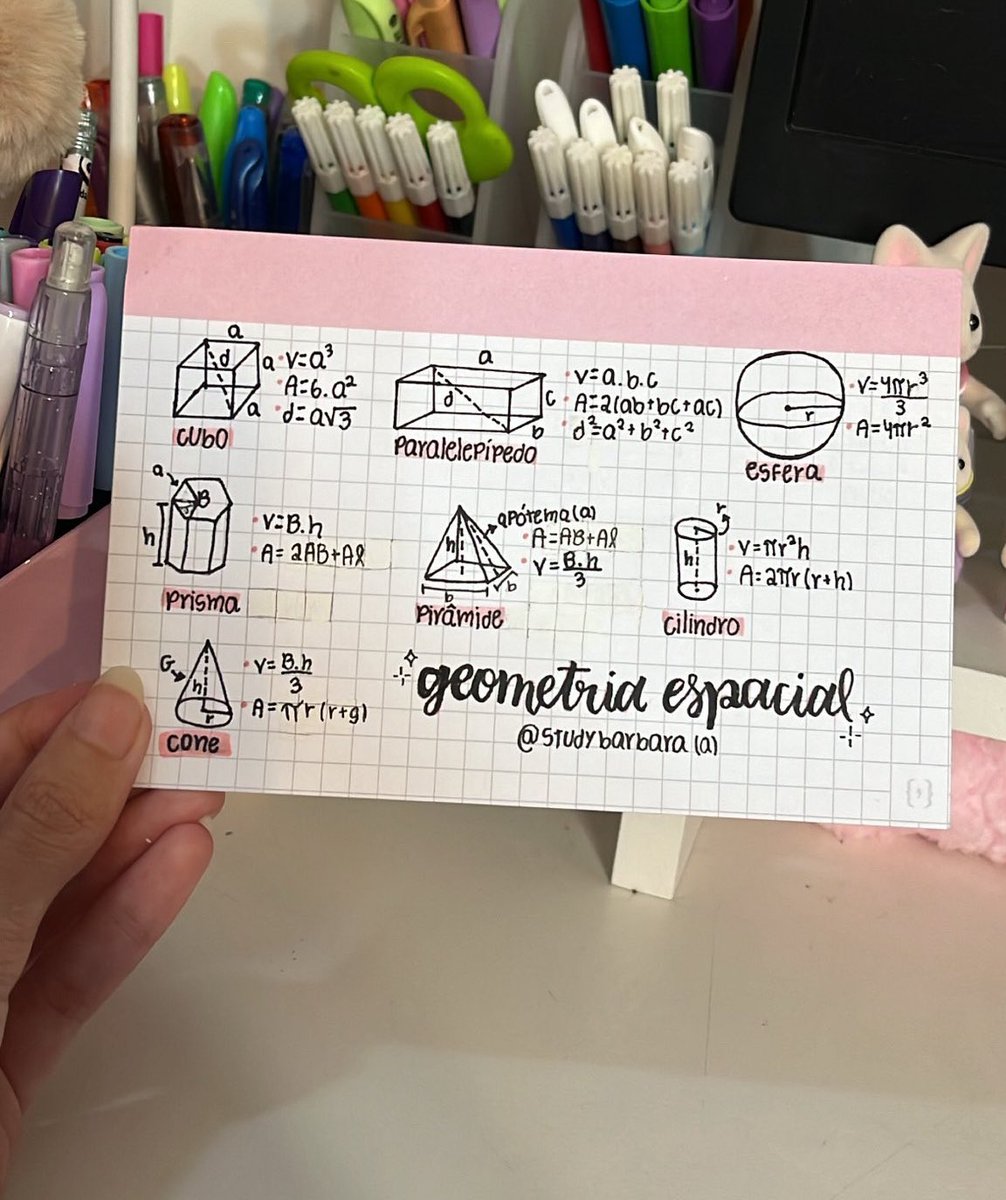 a
d
a
a
• V=a³
• A=6.a²
• d=a√3
cubo
a
d
c
b
• V=a.b.c
• A=2(ab+bc+ac)
• d²=a²+b²+c²
Paralelepípedo
r
• V=4πr³/3
• A=4πr²
esfera
a
B
h
• V=B.h
• A=2AB+Al
Prisma
h
apótema(a)
b
b
• A=AB+Al
• V=B.h/3
Pirâmide
r
h
• V=πr²h
• A=2πr(r+h)
cilindro
G
h
r
• V=B.h/3
• A=πr(r+g)
cone
geometria espacial
@studybarbara(a)